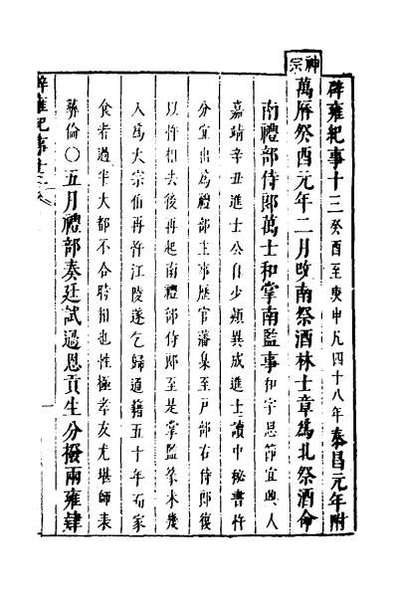 辟雍紀事十三癸酉至庚申凡四十八年泰昌元年附
神宗
萬曆癸酉元年二月改南祭酒林士章為北祭酒命
南禮部侍郎萬士和掌南監事和字思節宜興人
嘉靖辛丑進士公自少穎異成進士讀中秘書忤
分宜出為禮部主事歷官藩臬至戶部右侍郎復
以忤相去後再起南禮部侍郎至是掌監篆未幾
入為大宗伯再忤江陵遂乞歸通籍五十年而家
食者過半大都不合時相也性極孝友尤堪師表
彝倫〇五月禮部奏廷試過恩貢生分撥兩雍肄
辟雍紀事十三
一